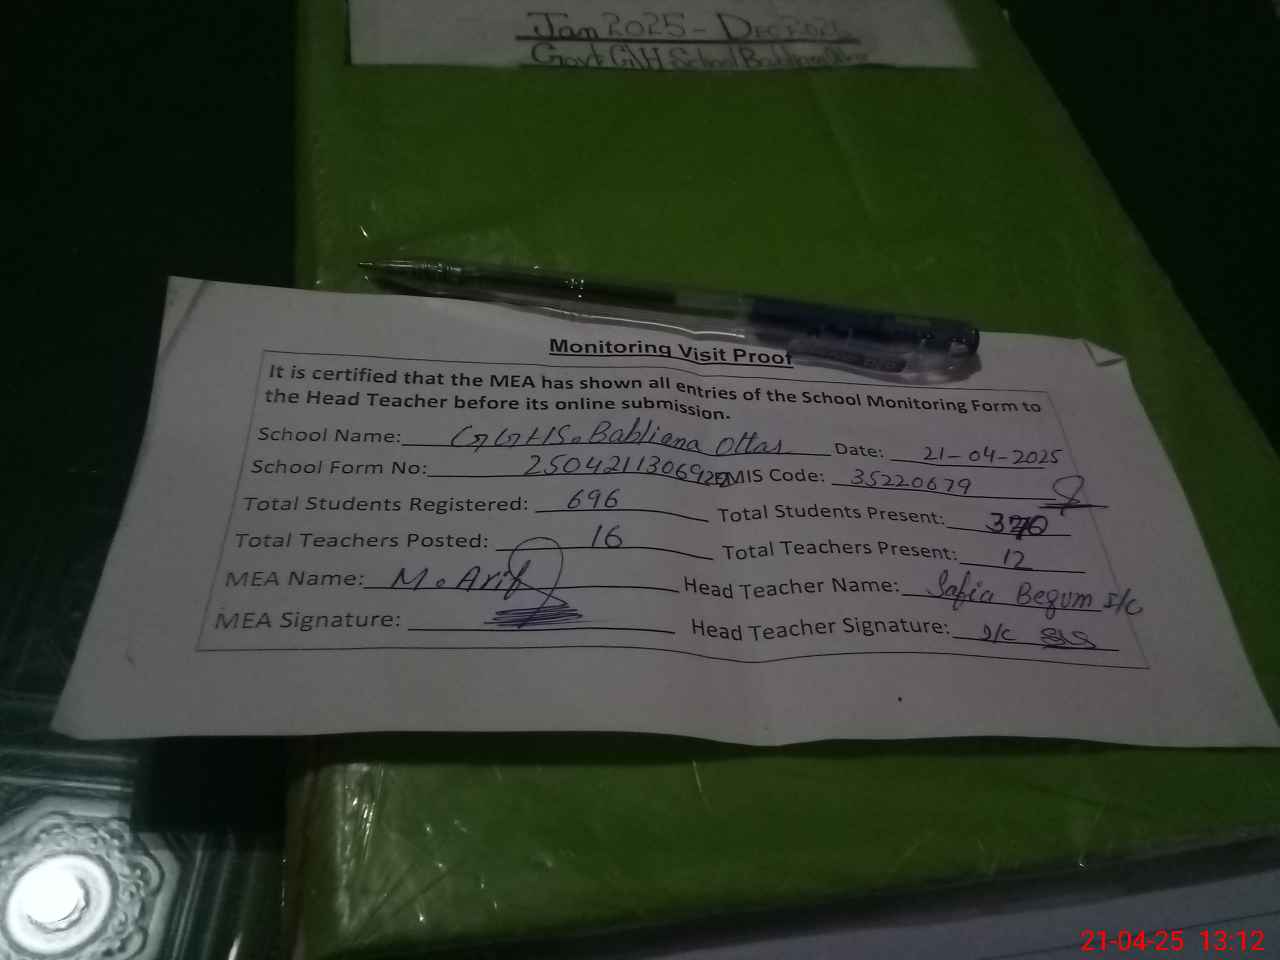 Jan 2025 - Dec 2025
Govt G/H School
Monitoring Visit Proof
It is certified that the MEA has shown all entries of the School Monitoring Form to
the Head Teacher before its online submission.
School Name: GGHS. Babliana Ottar Date: 21-04-2025
School Form No: MIS Code: 35220679
Total Students Registered: 696 Total Students Present:
Total Teachers Posted: 16 Total Teachers Present: 12
MEA Name: M. Arif Head Teacher Name: Safia Begum I/C
MEA Signature: Head Teacher Signature: I/C
21-04-25 13:12